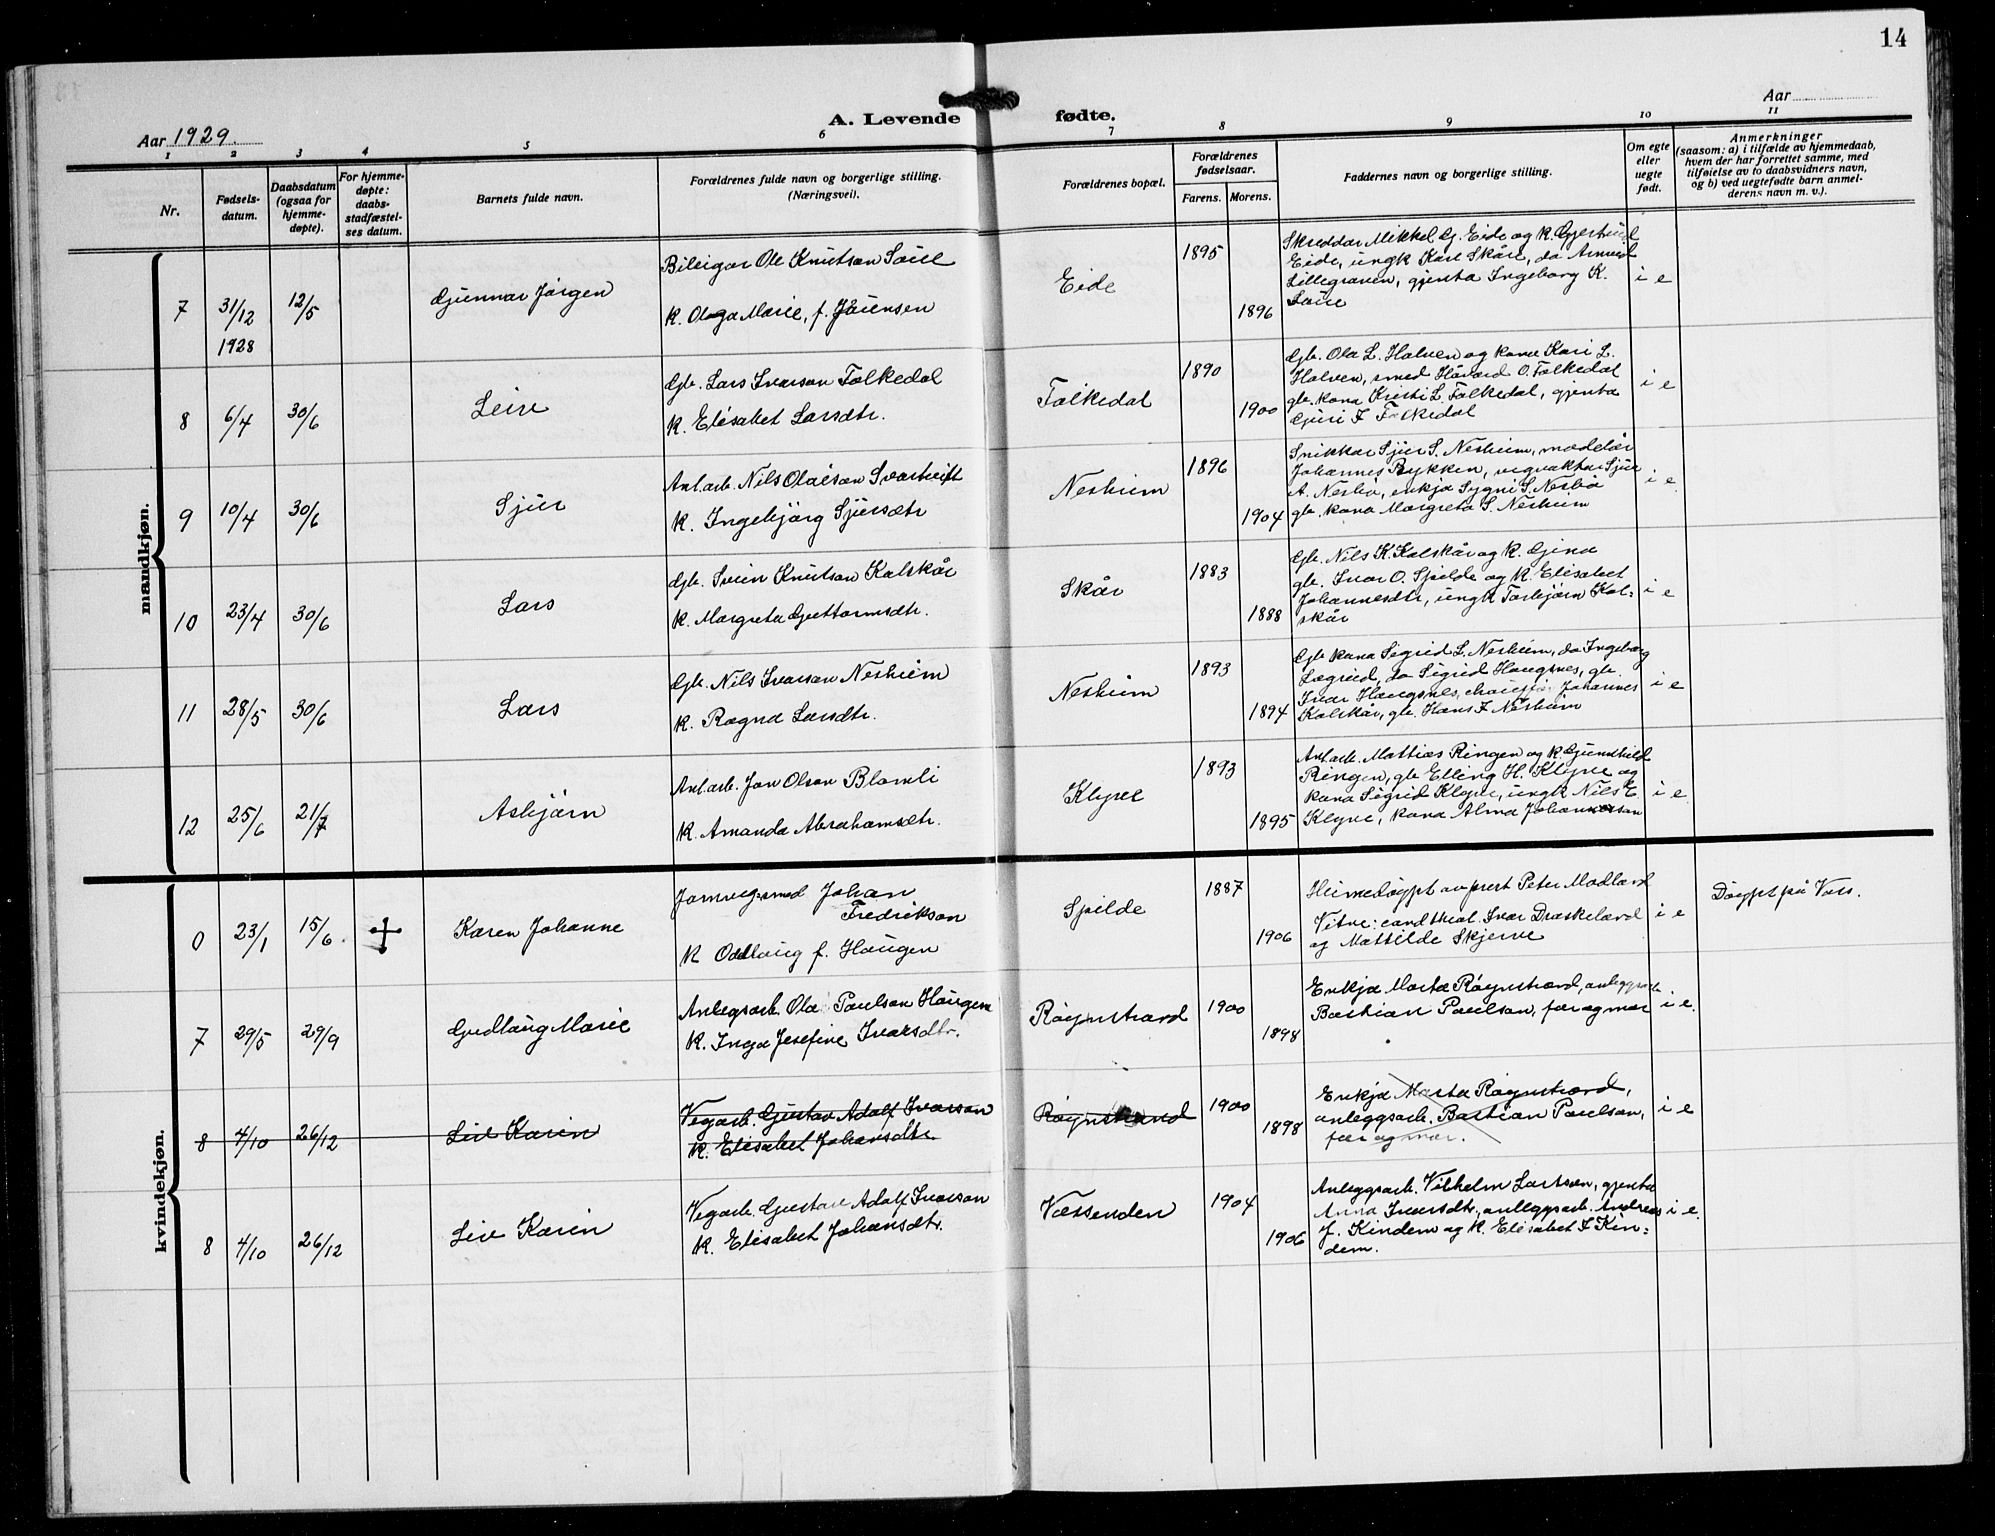 14
A. Levende fødte.
Aar 1929.
Aar
1 2 3 4 5 6 7 8 9 10 11
Nr.
Fødsels-
datum.
Daabsdatum
(ogsaa for
hjemme-
døpte).
For hjemme-
døpte:
daabs-
stadfæstel-
ses datum.
Barnets fulde navn.
Forældrenes fulde navn og borgerlige stilling.
(Næringsvei).
Forældrenes bopæl.
Forældrenes
fødselsaar.
Farens. Morens.
Faddernes navn og borgerlige stilling.
Om egte
eller
uegte
født.
Anmerkninger
(saasom: a) i tilfælde av hjemmedaab,
hvem der har forrettet samme, med
tilføielse av to daabsvidners navn,
og b) ved uegtefødte barn anmel-
derens navn m. v.).
mandkjøn.
7 31/12 1928 12/5 Gunnar Jørgen
Bileigar Ole Knutson
K. Olga Marie, f. Jørgensen
Eide 1895 1896
Skreddar Mikkel G. Eide og K. Gjertrud
Eide, ungk Kåre Skår, do Arnvid
Lillegraven, gjenta Ingeborg K.
i e
8 6/4 30/6 Leiv
Gb. Lars Ivarson Folkedal
K. Elisabet Larsdtr.
Folkedal 1890 1900
Gb. Ola L. Halven og kona Kari L.
Halven, smed Håvard O. Folkedal
gb. kona Kristi L. Folkedal, gjenta
Guri I Folkedal
i e
9 10/4 30/6 Sjur
Anl.arb. Nils Olaison
K. Ingebjørg Sjursdtr
Nesheim 1896 1904
Snikkar Sjur S. Nesheim, målar
Johannes Rykken, vegvaktar Sjur
A. Nesbø, enkja Sygni S. Nesbø
gb. kona Margreta S. Nesheim
i e
10 23/4 30/6 Lars
Gb. Svein Knutson Kolskår
K. Margreta Guttormsdtr.
Skår 1883 1888
Gb. Nils K. Kolskår og K. Gina
gb. Ivar O. Spilde og K. Elisabet
Johannesdtr, ungk Torbjørn Kol-
skår
i e
11 28/5 30/6 Lars
Gb. Nils Ivarson Nesheim
K. Ragna Larsdtr.
Nesheim 1893 1894
Gb kona Sigrid L. Nesheim, do Ingeborg
Lægreid, do Sigrid Haugsnes, gb.
Ivar Haugsnes, chaufør Johannes
Kolskår, gb. Hans I Nesheim
i e
12 25/6 21/7 Asbjørn
Anl.arb. Jon Olson Blomli
K. Amanda Abrahamsdtr.
Klyve 1893 1895
Anl.arb. Mattias Ringen og K. Gunnhild
Ringen, gb Elling H. Klyve og
kona Sigrid Klyve, ungk Nils E
Klyve, kona Alma Johannesson
i e
kvindekjøn.
0 23/1 15/6 Karen Johanne
Jarnvegsmed Johan
Fredrikson
K Oddlaug f. Haugen
Spilde 1887 1906
Heimedøypt av prest Peter Modland
Vitne: cand theol. Ivar Draskeland
og Mattilde Skjerve
i e
Døypt på Voss.
7 29/5 29/9 Gudlaug Marie
Anlegsarb. Ola Paulson Haugen
K. Inga Josefine Ivarsdtr.
Røynstrand 1900 1898
Enkja Marta Røynstrand, anleggsarb
Bastian Paulson, far og mor
i e
8 4/10 26/12 Liv Karin
Vegarb. Gustav Adolf Ivarson
K. Elisabet Johansdtr.
Røynstrand 1900 1898
Enkja Marta Røynstrand,
anleggsarb. Bastian Paulson,
far og mor.
i e
8 4/10 26/12 Liv Karin
Vegarb. Gustav Adolf Ivarson
K. Elisabet Johansdtr.
Vassenden 1904 1906
Anleggsarb. Vilhelm Larsson, gjenta
Anna Ivarsdtr, anleggsarb. Andreas
J. Kindem og K. Elisabet I Kin-
dem.
i e